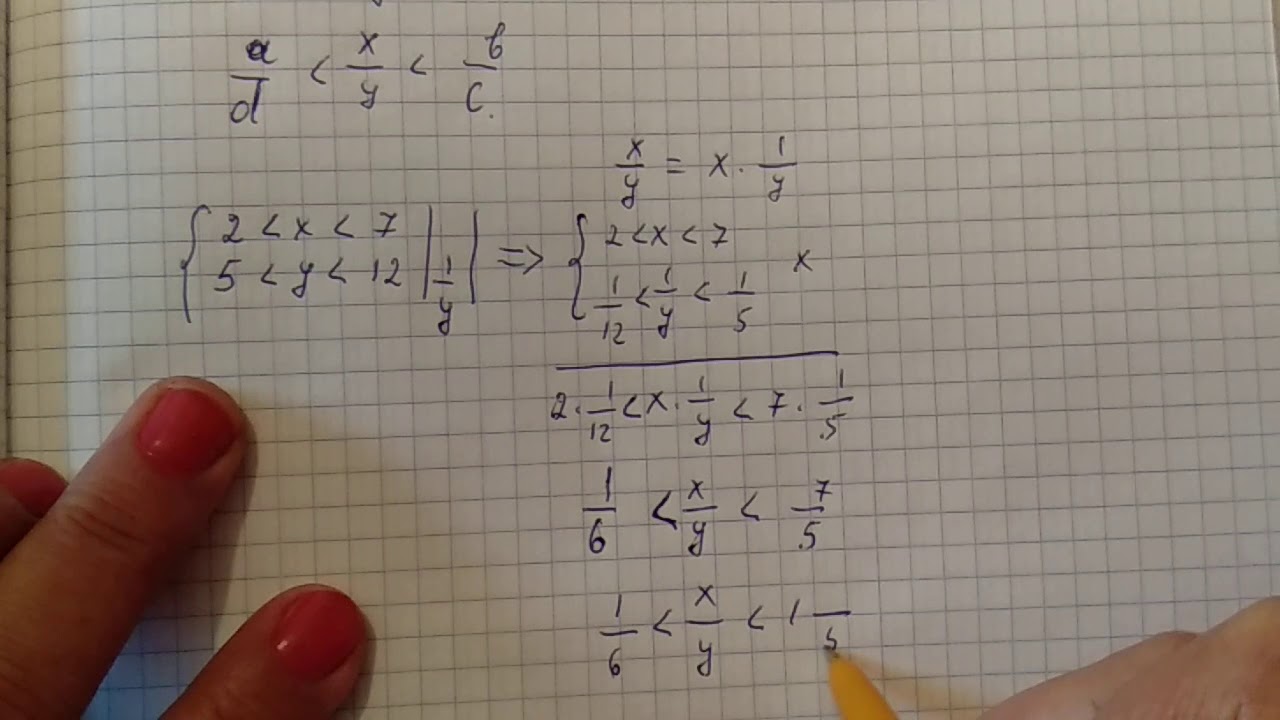 a/d < x/y < b/c.
x/y = x · 1/y
{ 2 < x < 7
5 < y < 12 | 1/y | => { 2 < x < 7
1/12 < 1/y < 1/5 x
2 · 1/12 < x · 1/y < 7 · 1/5
1/6 < x/y < 7/5
1/6 < x/y < 1 /5